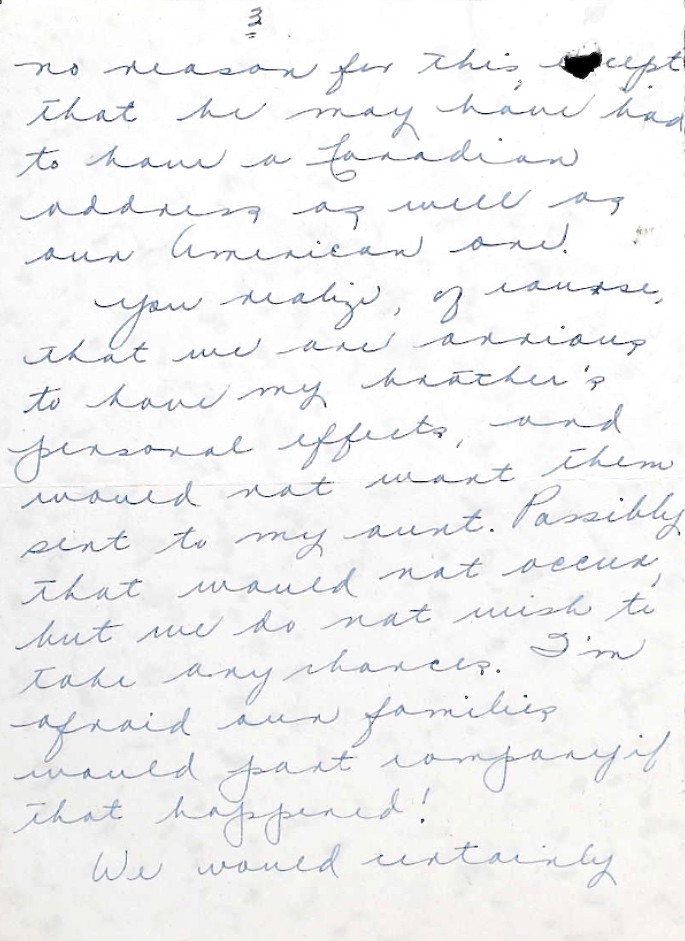 3
no reason for this except
that he may have had
to have a Canadian
address as well as
our American one.
You realize, of course,
that we are anxious
to have my brother's
personal effects, and
would not want them
sent to my aunt. Possibly
that would not occur,
but we do not wish to
take any chances. I'm
afraid our families
would part company if
that happened!
We would certainly